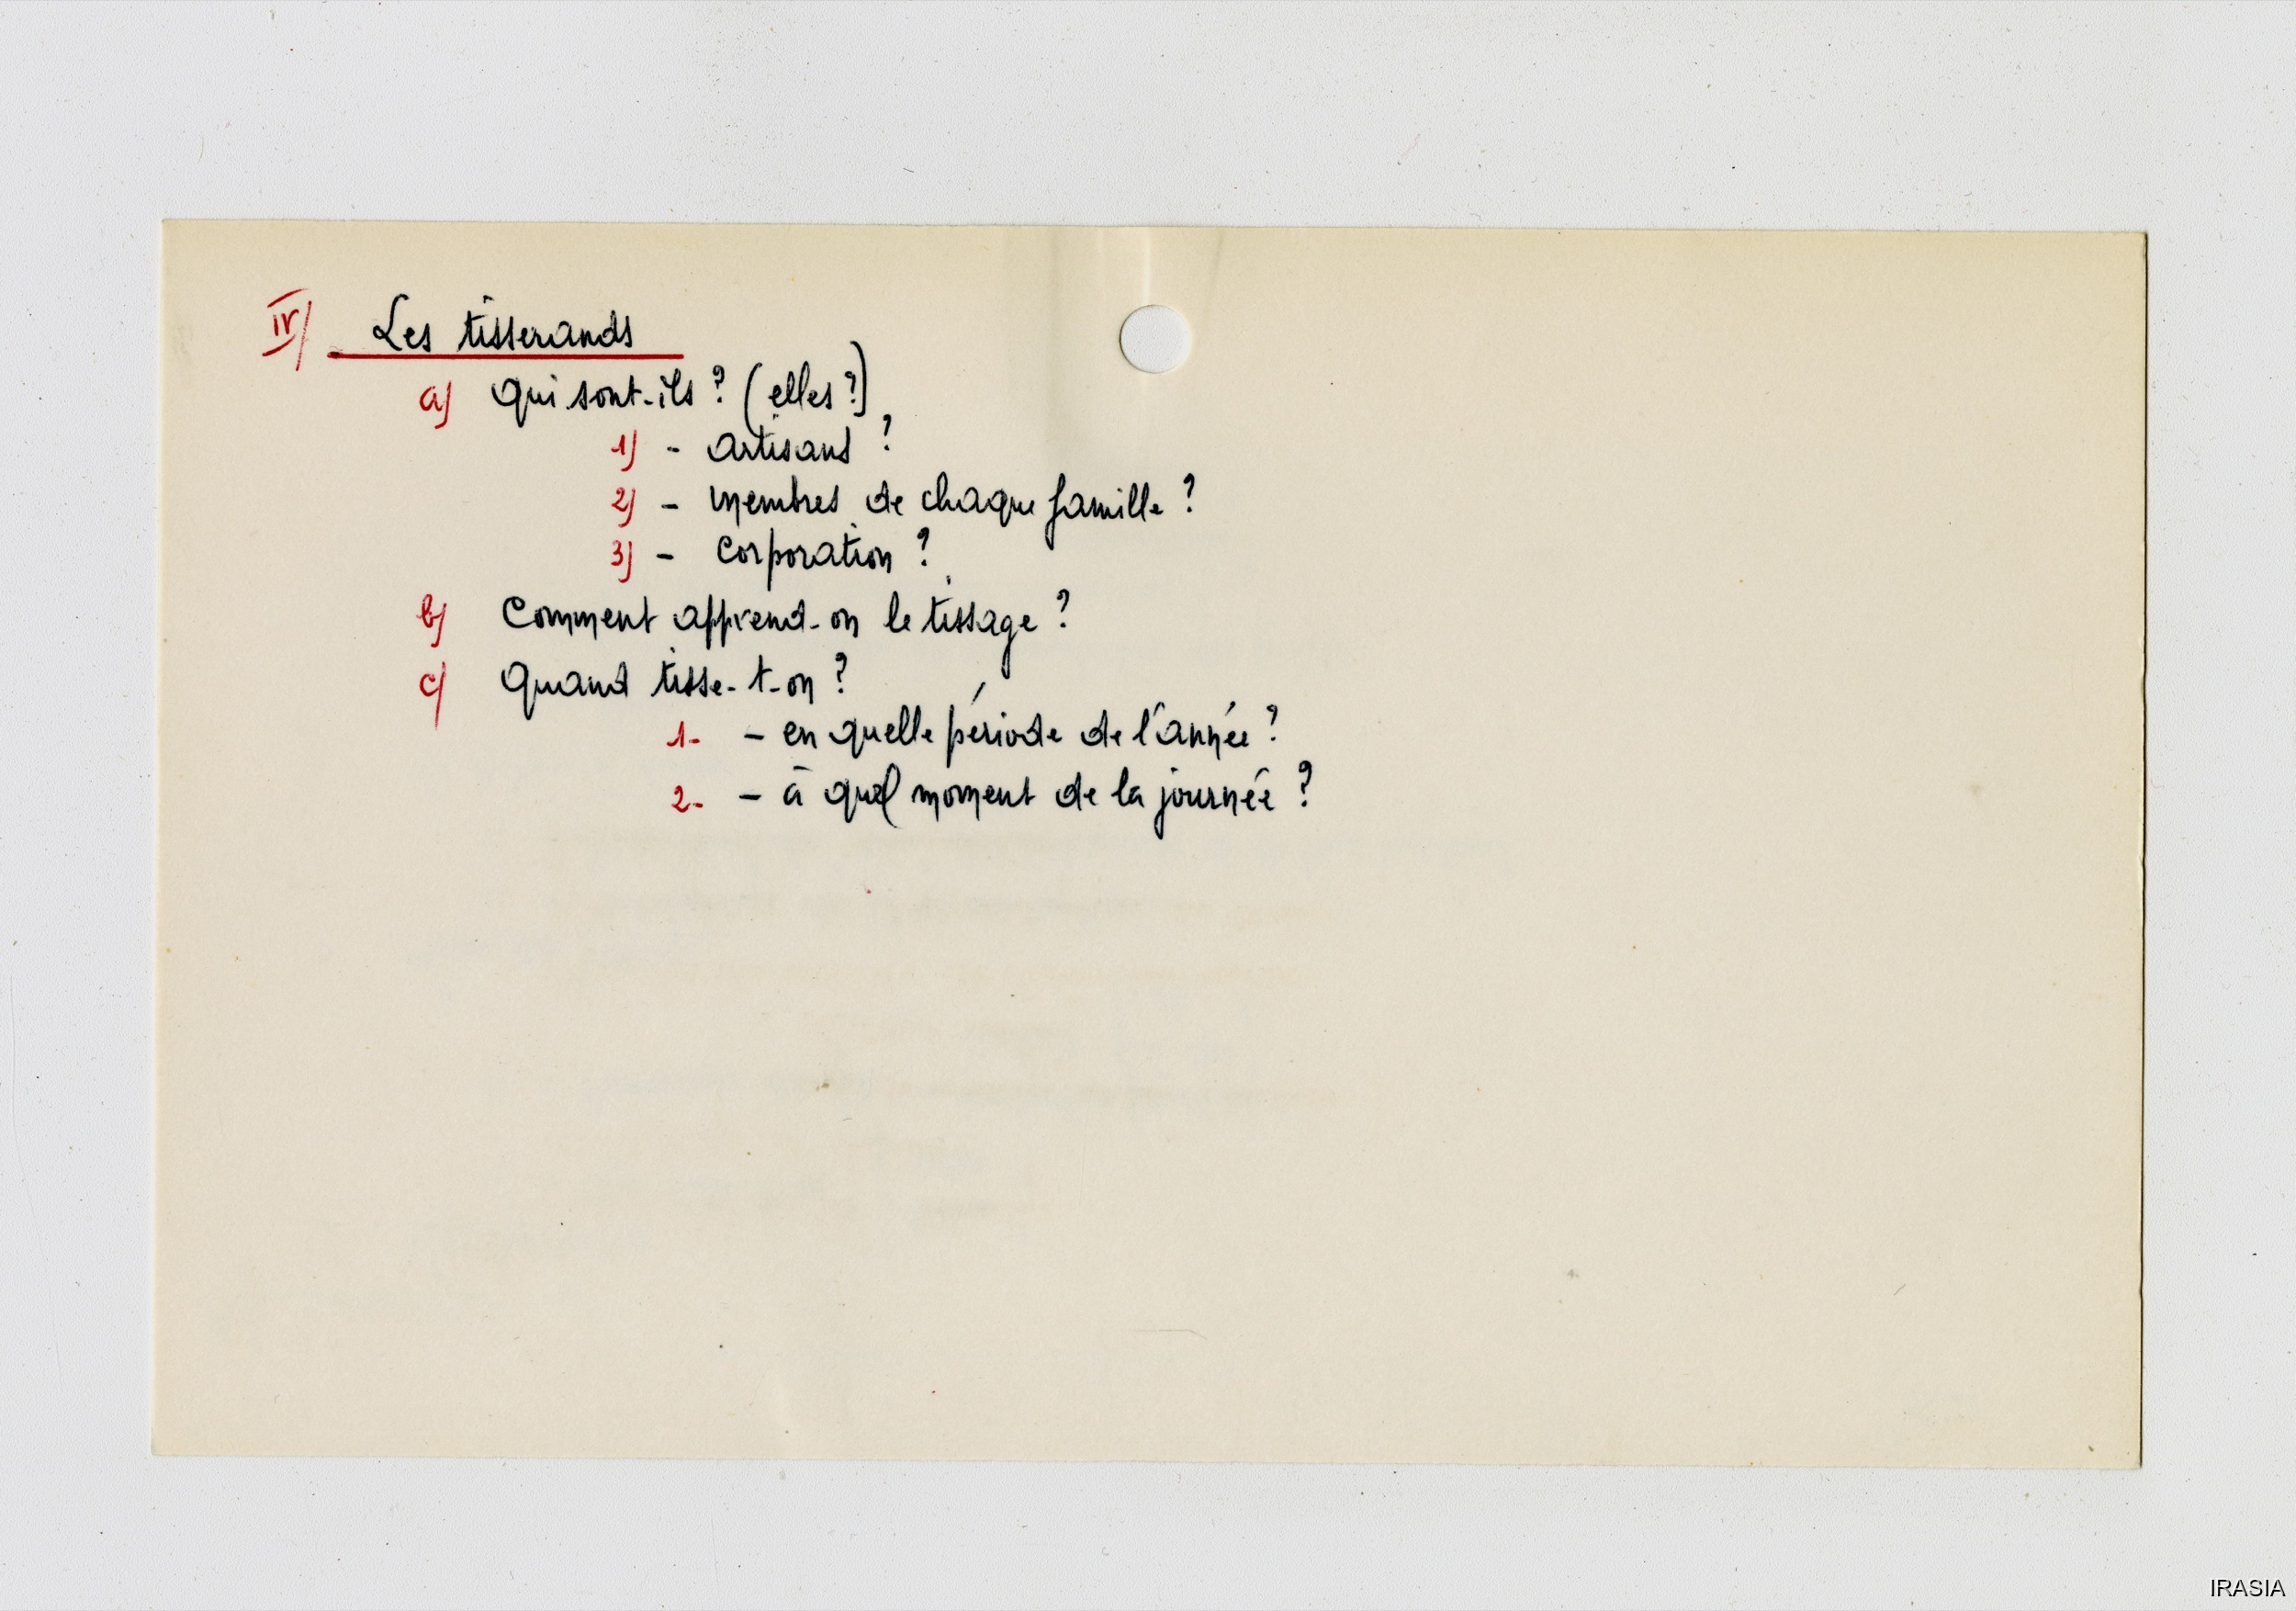 IV) Les tisserands
a) Qui sont-ils ? (elles ?)
1) - artisans ?
2) - membres de chaque famille ?
3) - corporation ?
b) Comment apprend-on le tissage ?
c) Quand tisse-t-on ?
1- - en quelle période de l'année ?
2- - à quel moment de la journée ?
IRASIA